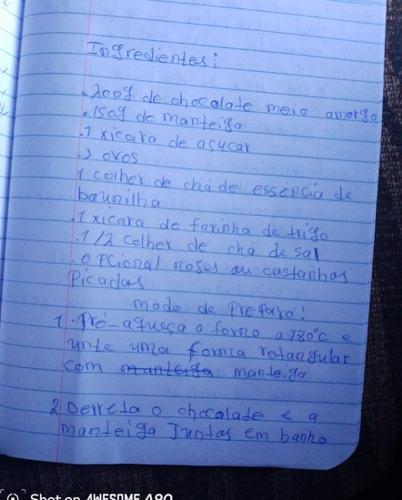 Ingredientes:
.200g de chocolate meio amargo
.150g de manteiga
.1 xícara de açucar
.3 ovos
1 colher de chá de essência de
baunilha
.1 xícara de farinha de trigo
.1/2 colher de chá de sal
.OPcional noses ou castanhas
Picadas
modo de Preparo:
1.Pré-aqueça o forno a 180°c e
unte uma forma retangular
com manteiga manteiga
2 Derreta o chocolate e a
manteiga Juntos em banho
Shot on AWESOME A90